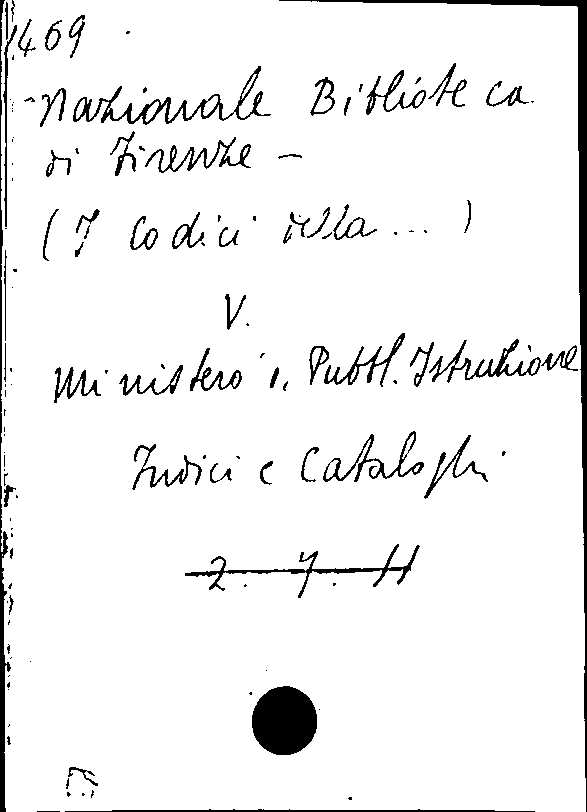 1469
Nazionale Biblioteca
di Firenze -
(I Codici della ... )
V.
Ministero d. Pubbl. Istruzione
Indici e Cataloghi
2. 7. 11